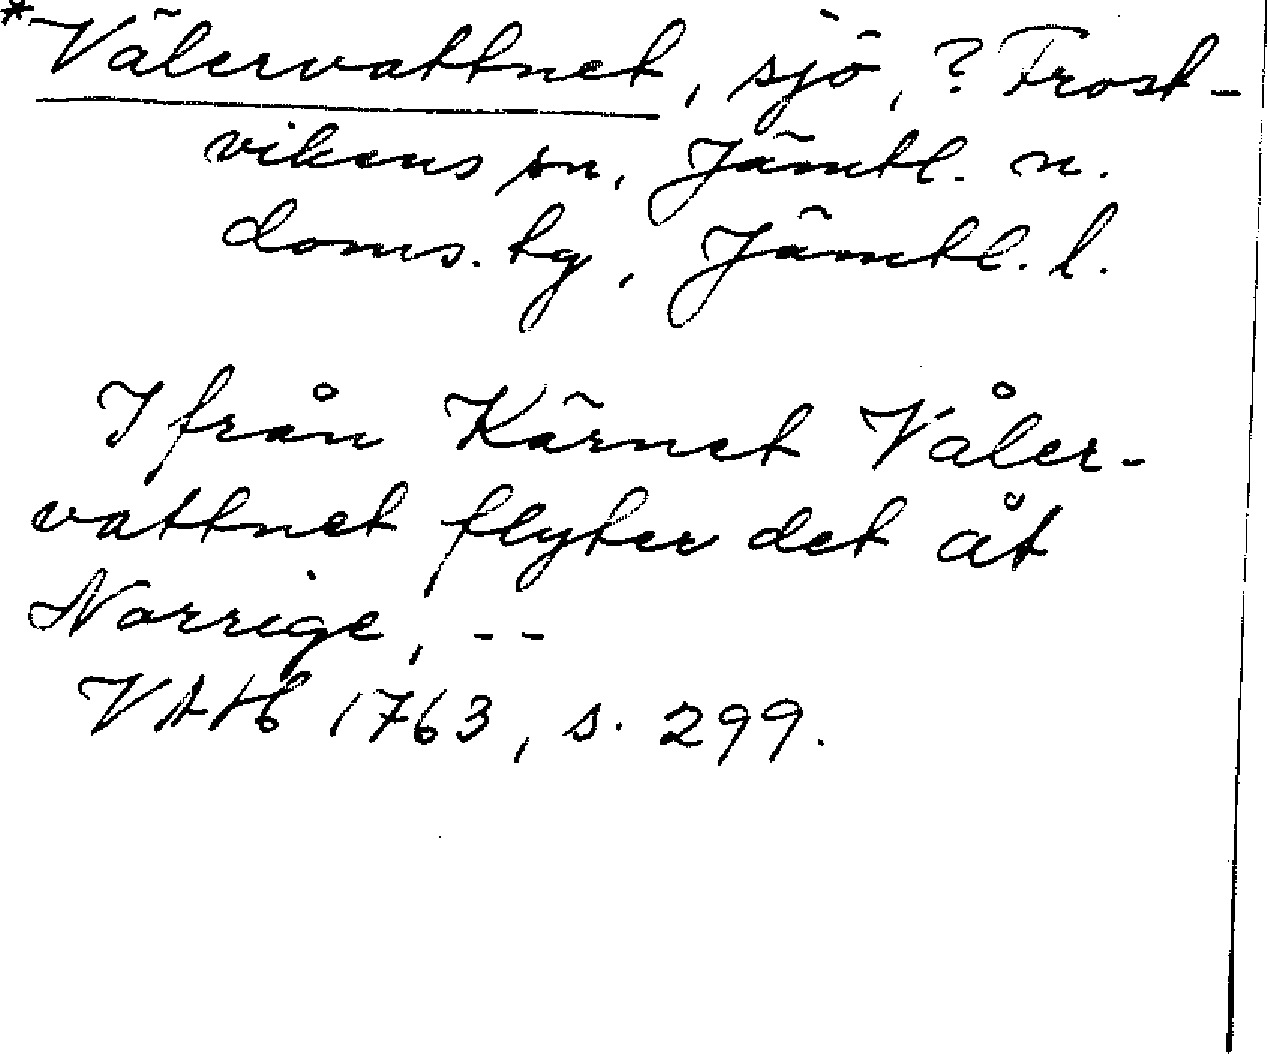 *Välervattnet, sjö, ? Frost-
vikens sn, Jämtl. n.
doms. tg, Jämtl. l.
Ifrån Kärnet Våler-
vattnet flyter det åt
Norrige, --
VAH 1763, s. 299.